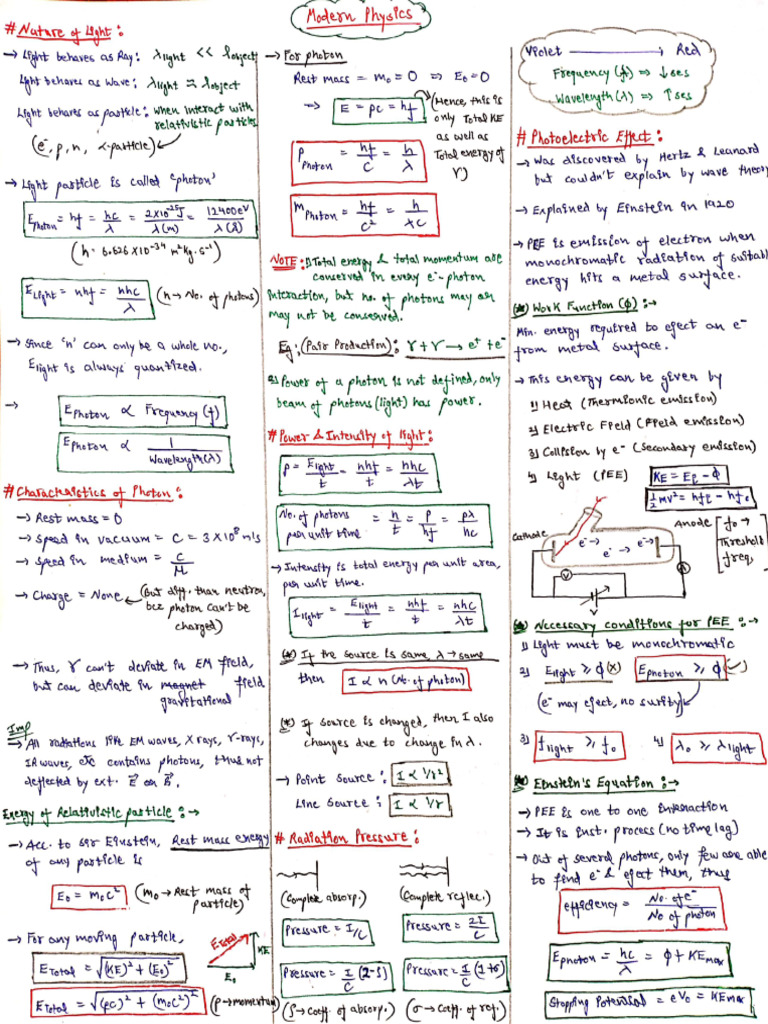 Modern Physics
# Nature of Light:
→ Light behaves as Ray: λlight << lobject
Light behaves as Wave: λlight ≈ lobject
Light behaves as particle: when interact with
relativistic particles
(e⁻, p, n, α-particle)
→ Light particle is called 'photon'
Ephoton = hf = hc/λ = 2×10⁻²⁵J/λ(m) = 12400eV/λ(Å)
(h = 6.626×10⁻³⁴ m²kg.s⁻¹)
ELight = nhf = nhc/λ (n→ No. of photons)
→ Since 'n' can only be a whole no.,
Elight is always quantized.
→ EPhoton ∝ Frequency(f)
EPhoton ∝ 1/Wavelength(λ)
# Characteristics of Photon:
→ Rest mass = 0
→ Speed in vacuum = C = 3×10⁸ m/s
→ Speed in medium = C/μ
→ Charge = None (But diff. than neutron,
bcz photon can't be
charged)
→ Thus, γ can't deviate in EM field,
but can deviate in magnet field
gravitational
Imp
⇒ All radiations like EM waves, X rays, γ-rays,
IR waves, etc contains photons, thus not
deflected by ext. E⃗ or B⃗.
Energy of Relativistic particle:→
→ Acc. to sir Einstein, Rest mass energy
of any particle is
E₀ = m₀c² (m₀→Rest mass of
particle)
→ For any moving particle,
ETotal = √(KE)² + (E₀)²
ETotal = √(pc)² + (m₀c²)² (p→momentum)
ETotal KE
E₀
→ For photon
Rest mass = m₀ = 0 ⇒ E₀ = 0
⇒ E = pc = hf (Hence, this is
only Total KE
as well as
Total energy of
γ)
PPhoton = hf/c = h/λ
mPhoton = hf/c² = h/λc
NOTE: 1) Total energy & total momentum are
conserved in every e⁻-photon
interaction, but no. of photons may or
may not be conserved.
Eg: (Pair Production): γ + γ → e⁺ + e⁻
2) Power of a photon is not defined, only
beam of photons (light) has power.
# Power & Intensity of light:
P = Elight/t = nhf/t = nhc/λt
No. of photons
per unit time = n/t = P/hf = Pλ/hc
→ Intensity is total energy per unit area,
per unit time.
Ilight = Elight/t = nhf/t = nhc/λt
(*) If the source is same, λ→same
then I ∝ n (No. of photon)
(*) If source is changed, then I also
changes due to change in λ.
→ Point source: I ∝ 1/r²
Line source: I ∝ 1/r
# Radiation Pressure:
(Complete absorp.) (Complete reflec.)
Pressure = I/C Pressure = 2I/C
Pressure = I/C (2-S) Pressure = I/C (1+σ)
(S→Coeff. of absorp.) (σ→Coeff. of ref.)
Violet → Red
Frequency (f) ⇒ ↓ses
Wavelength (λ) ⇒ ↑ses
# Photoelectric Effect:
→ Was discovered by Hertz & Leanard
but couldn't explain by wave theory
→ Explained by Einstein in 1920
→ PEE is emission of electron when
monochromatic radiation of suitabl
energy hits a metal surface.
(*) Work Function (Φ):→
Min. energy required to eject an e⁻
from metal surface.
→ This energy can be given by
1) Heat (Thermionic emission)
2) Electric Field (Field emission)
3) Collision by e⁻ (Secondary emission)
4) Light (PEE) KE = EL - Φ
½mv² = hft - hf₀
Cathode Anode [f₀→
Threshold
freq.]
e⁻→ e⁻→ e⁻→
V A
(*) Necessary conditions for PEE:→
1) Light must be monochromatic
2) Elight ≥ Φ (×) Ephoton ≥ Φ (✓)
(e⁻ may eject, no surity)
3) flight ≥ f₀ 4) λ₀ ≥ λlight
(*) Einstein's Equation:→
→ PEE is one to one interaction
→ It is inst. process (no time lag)
→ Out of several photons, only few are able
to find e⁻ & eject them, thus
efficiency = No. of e⁻/No of photon
Ephoton = hc/λ = Φ + KEmax
Stopping Potential = eV₀ = KEmax